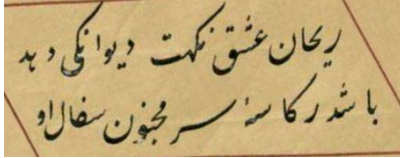 ریحان عشق نکهت دیوانگی دهد
باشد ز کاسهٔ سر مجنون سفال او